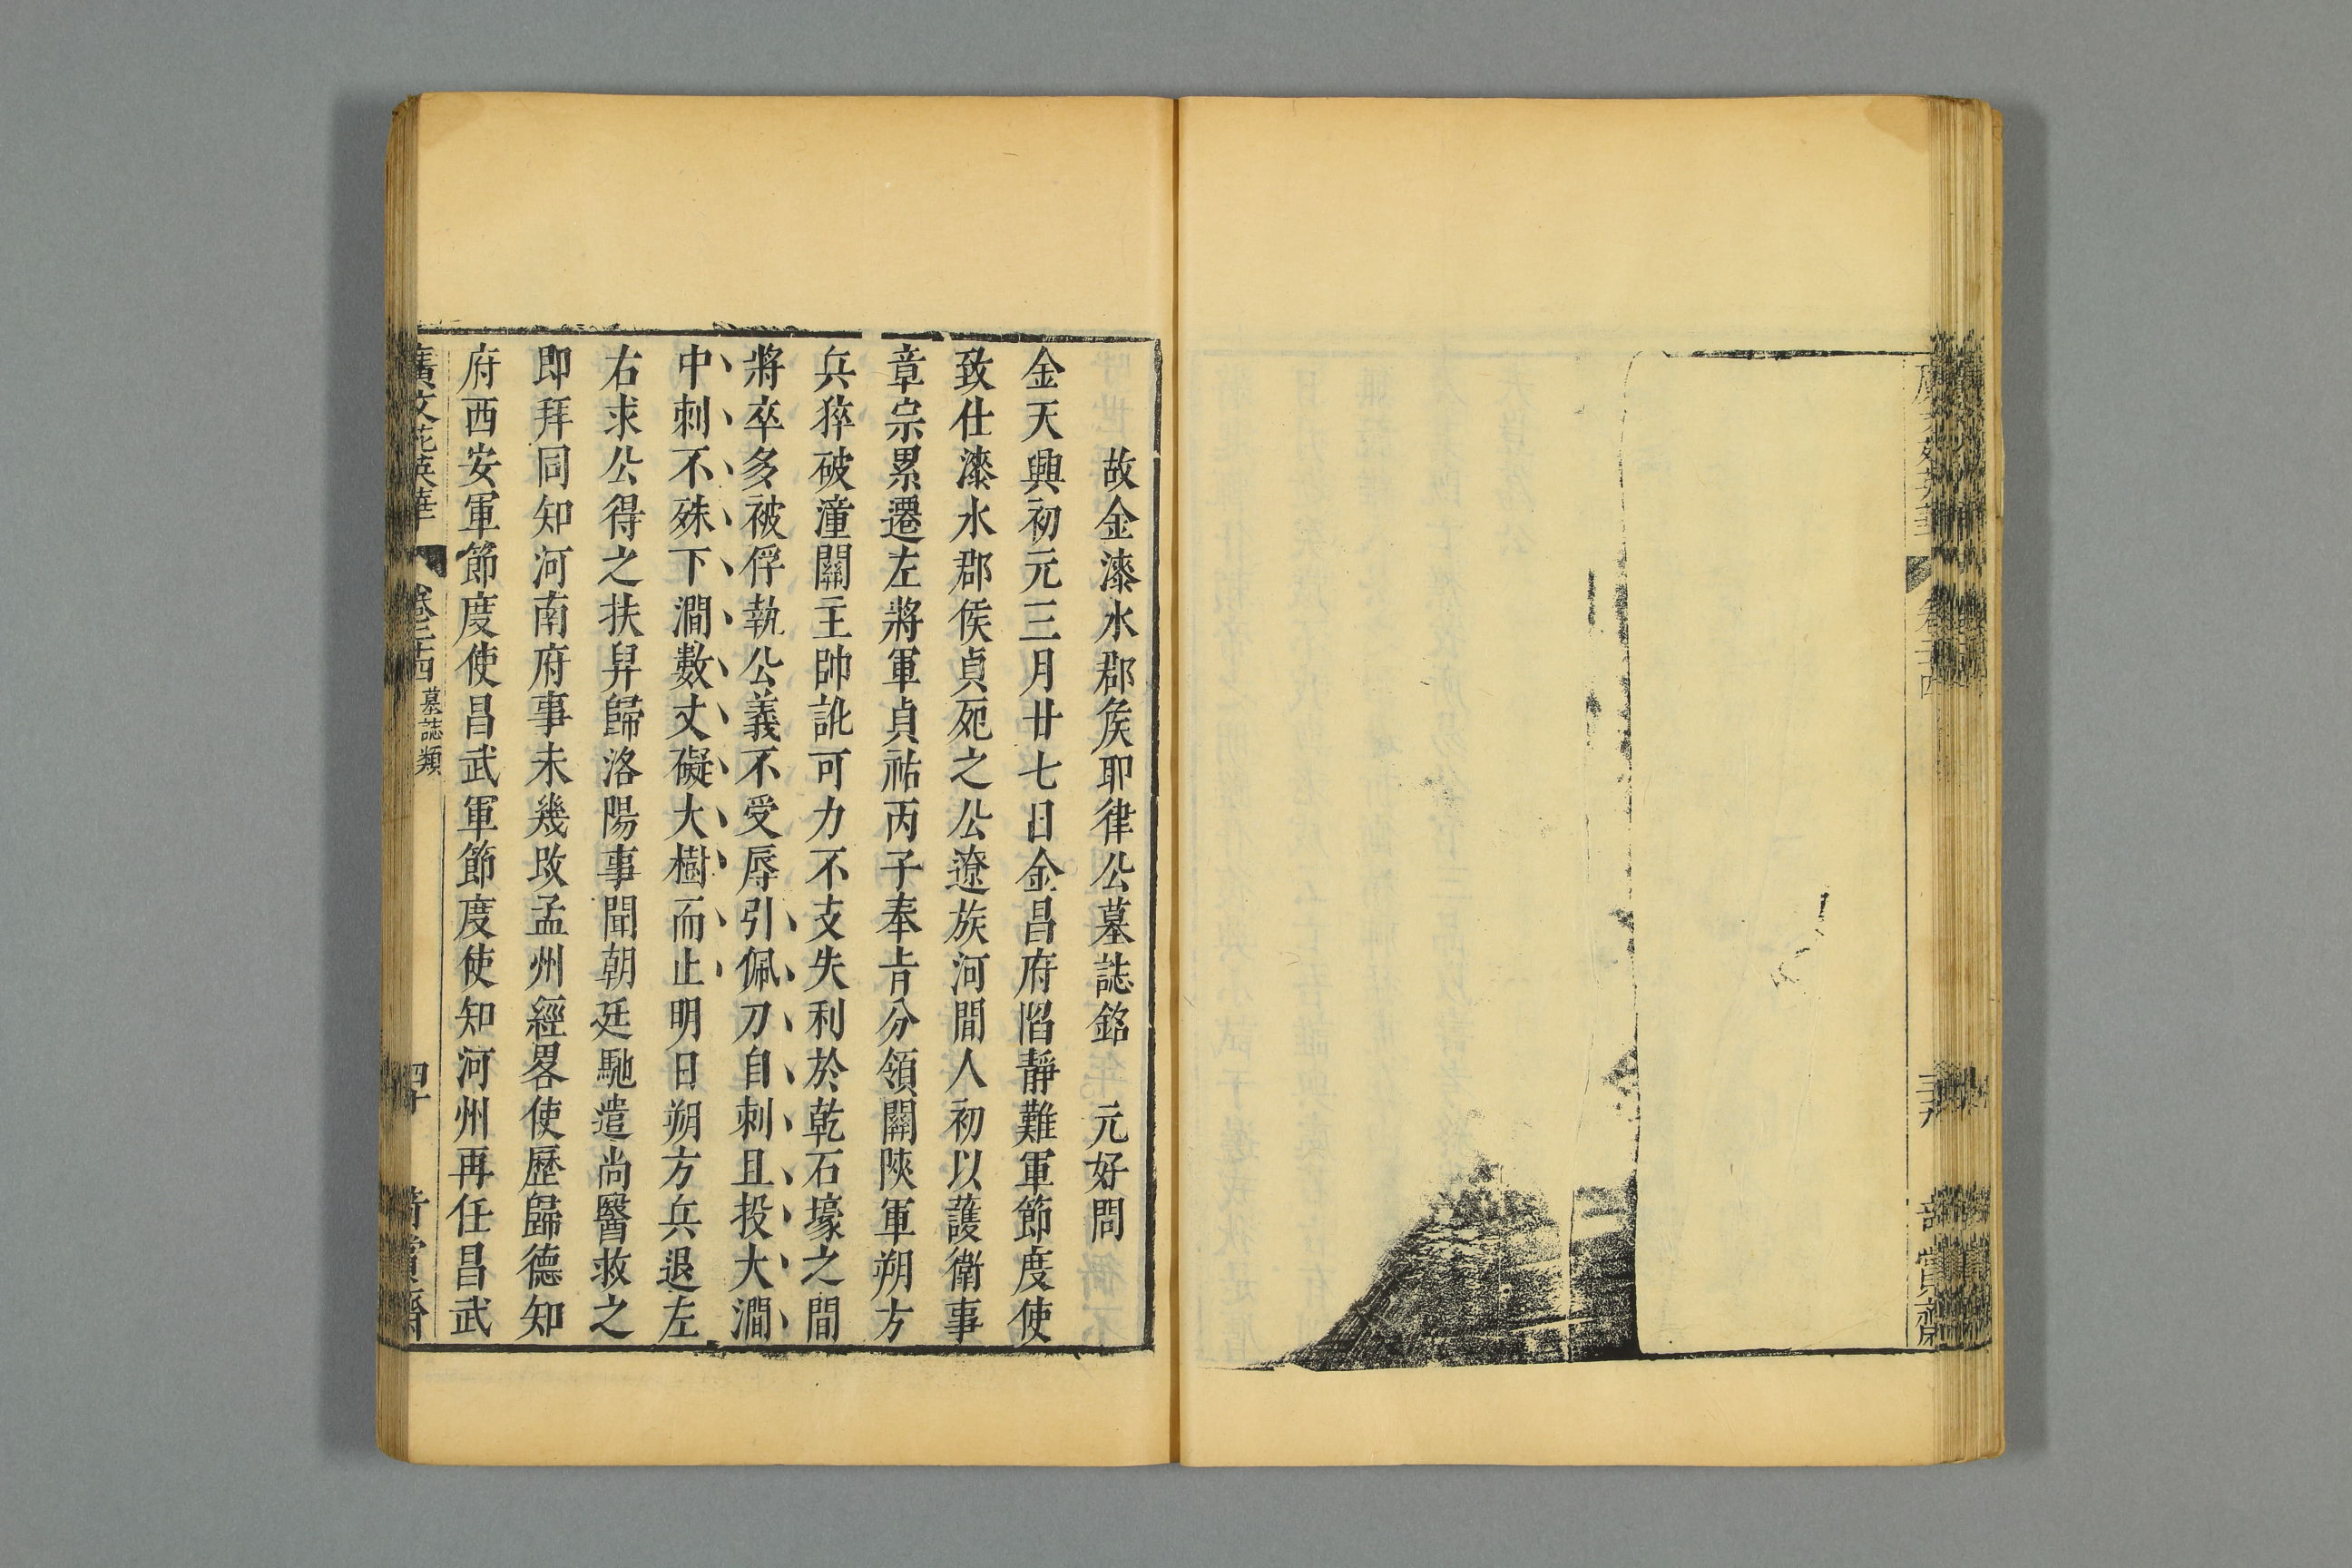 故金漆水郡矦耶律公墓誌銘　元好問
金天興初元三月廿七日金昌府陷靜難軍節度使
致仕漆水郡侯貞死之公遼族河間人初以護衛事
章宗累遷左將軍貞祐丙子奉㫖分領關陝軍朔方
兵猝破潼關主帥訛可力不支失利於乾石壕之間
將卒多被俘執公義不受辱引佩刀自刺且投大澗
中刺不殊下澗數丈礙大樹而止明日朔方兵退左
右求公得之扶舁歸洛陽事聞朝廷馳遣尚醫救之
即拜同知河南府事未幾改孟州經畧使歷歸德知
府西安軍節度使昌武軍節度使知河州再任昌武
廣文苑英華
墓誌類
四十